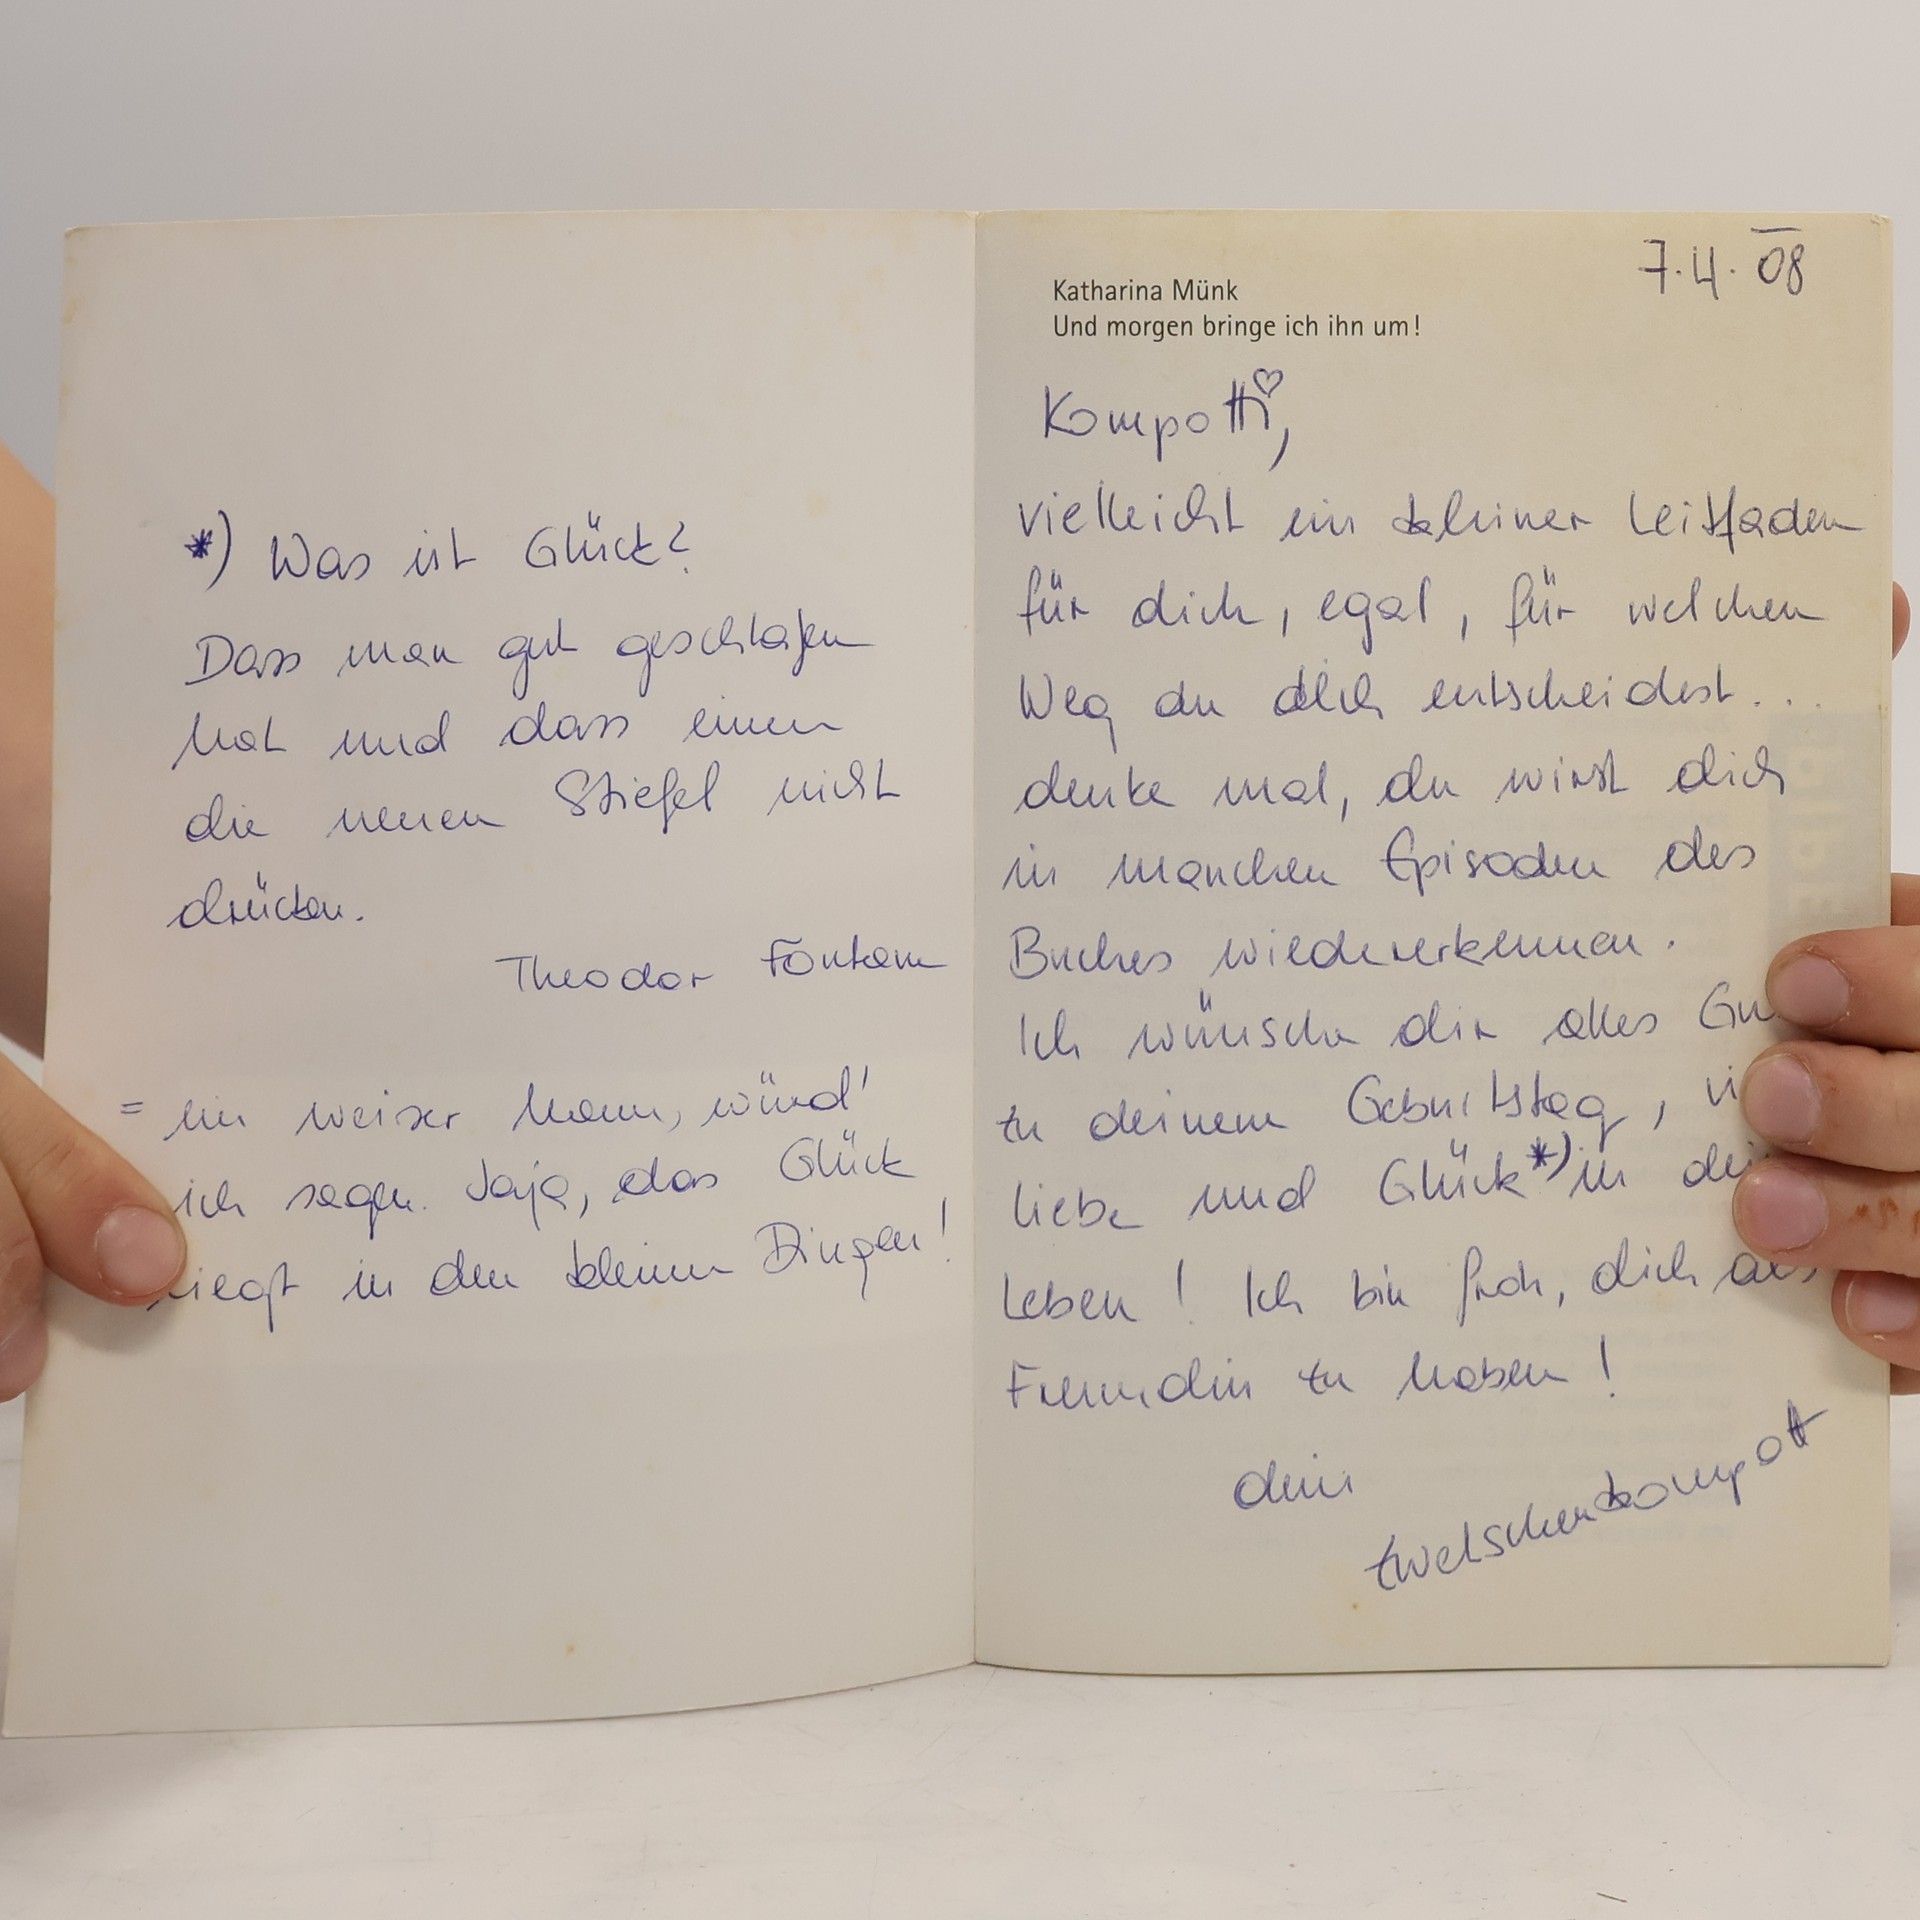 *) Was ist Glück?
Dass man gut geschlafen
hat und dass einen
die neuen Stiefel nicht
drücken.
Theodor Fontane
= ein weiser Mann, würd'
ich sagen. Jaja, das Glück
liegt in den kleinen Dingen!
7.4.08
Katharina Münk
Und morgen bringe ich ihn um!
Kompotti,
vielleicht ein kleiner Leitfaden
für dich, egal, für welchen
Weg du dich entscheidest...
denke mal, du wirst dich
in manchen Episoden des
Buches wiedererkennen.
Ich wünsche dir alles Gu
zu deinem Geburtstag, vi
Liebe und Glück*) in dei
Leben! Ich bin froh, dich als
Freundin zu haben!
dein
Zwetschenkompott